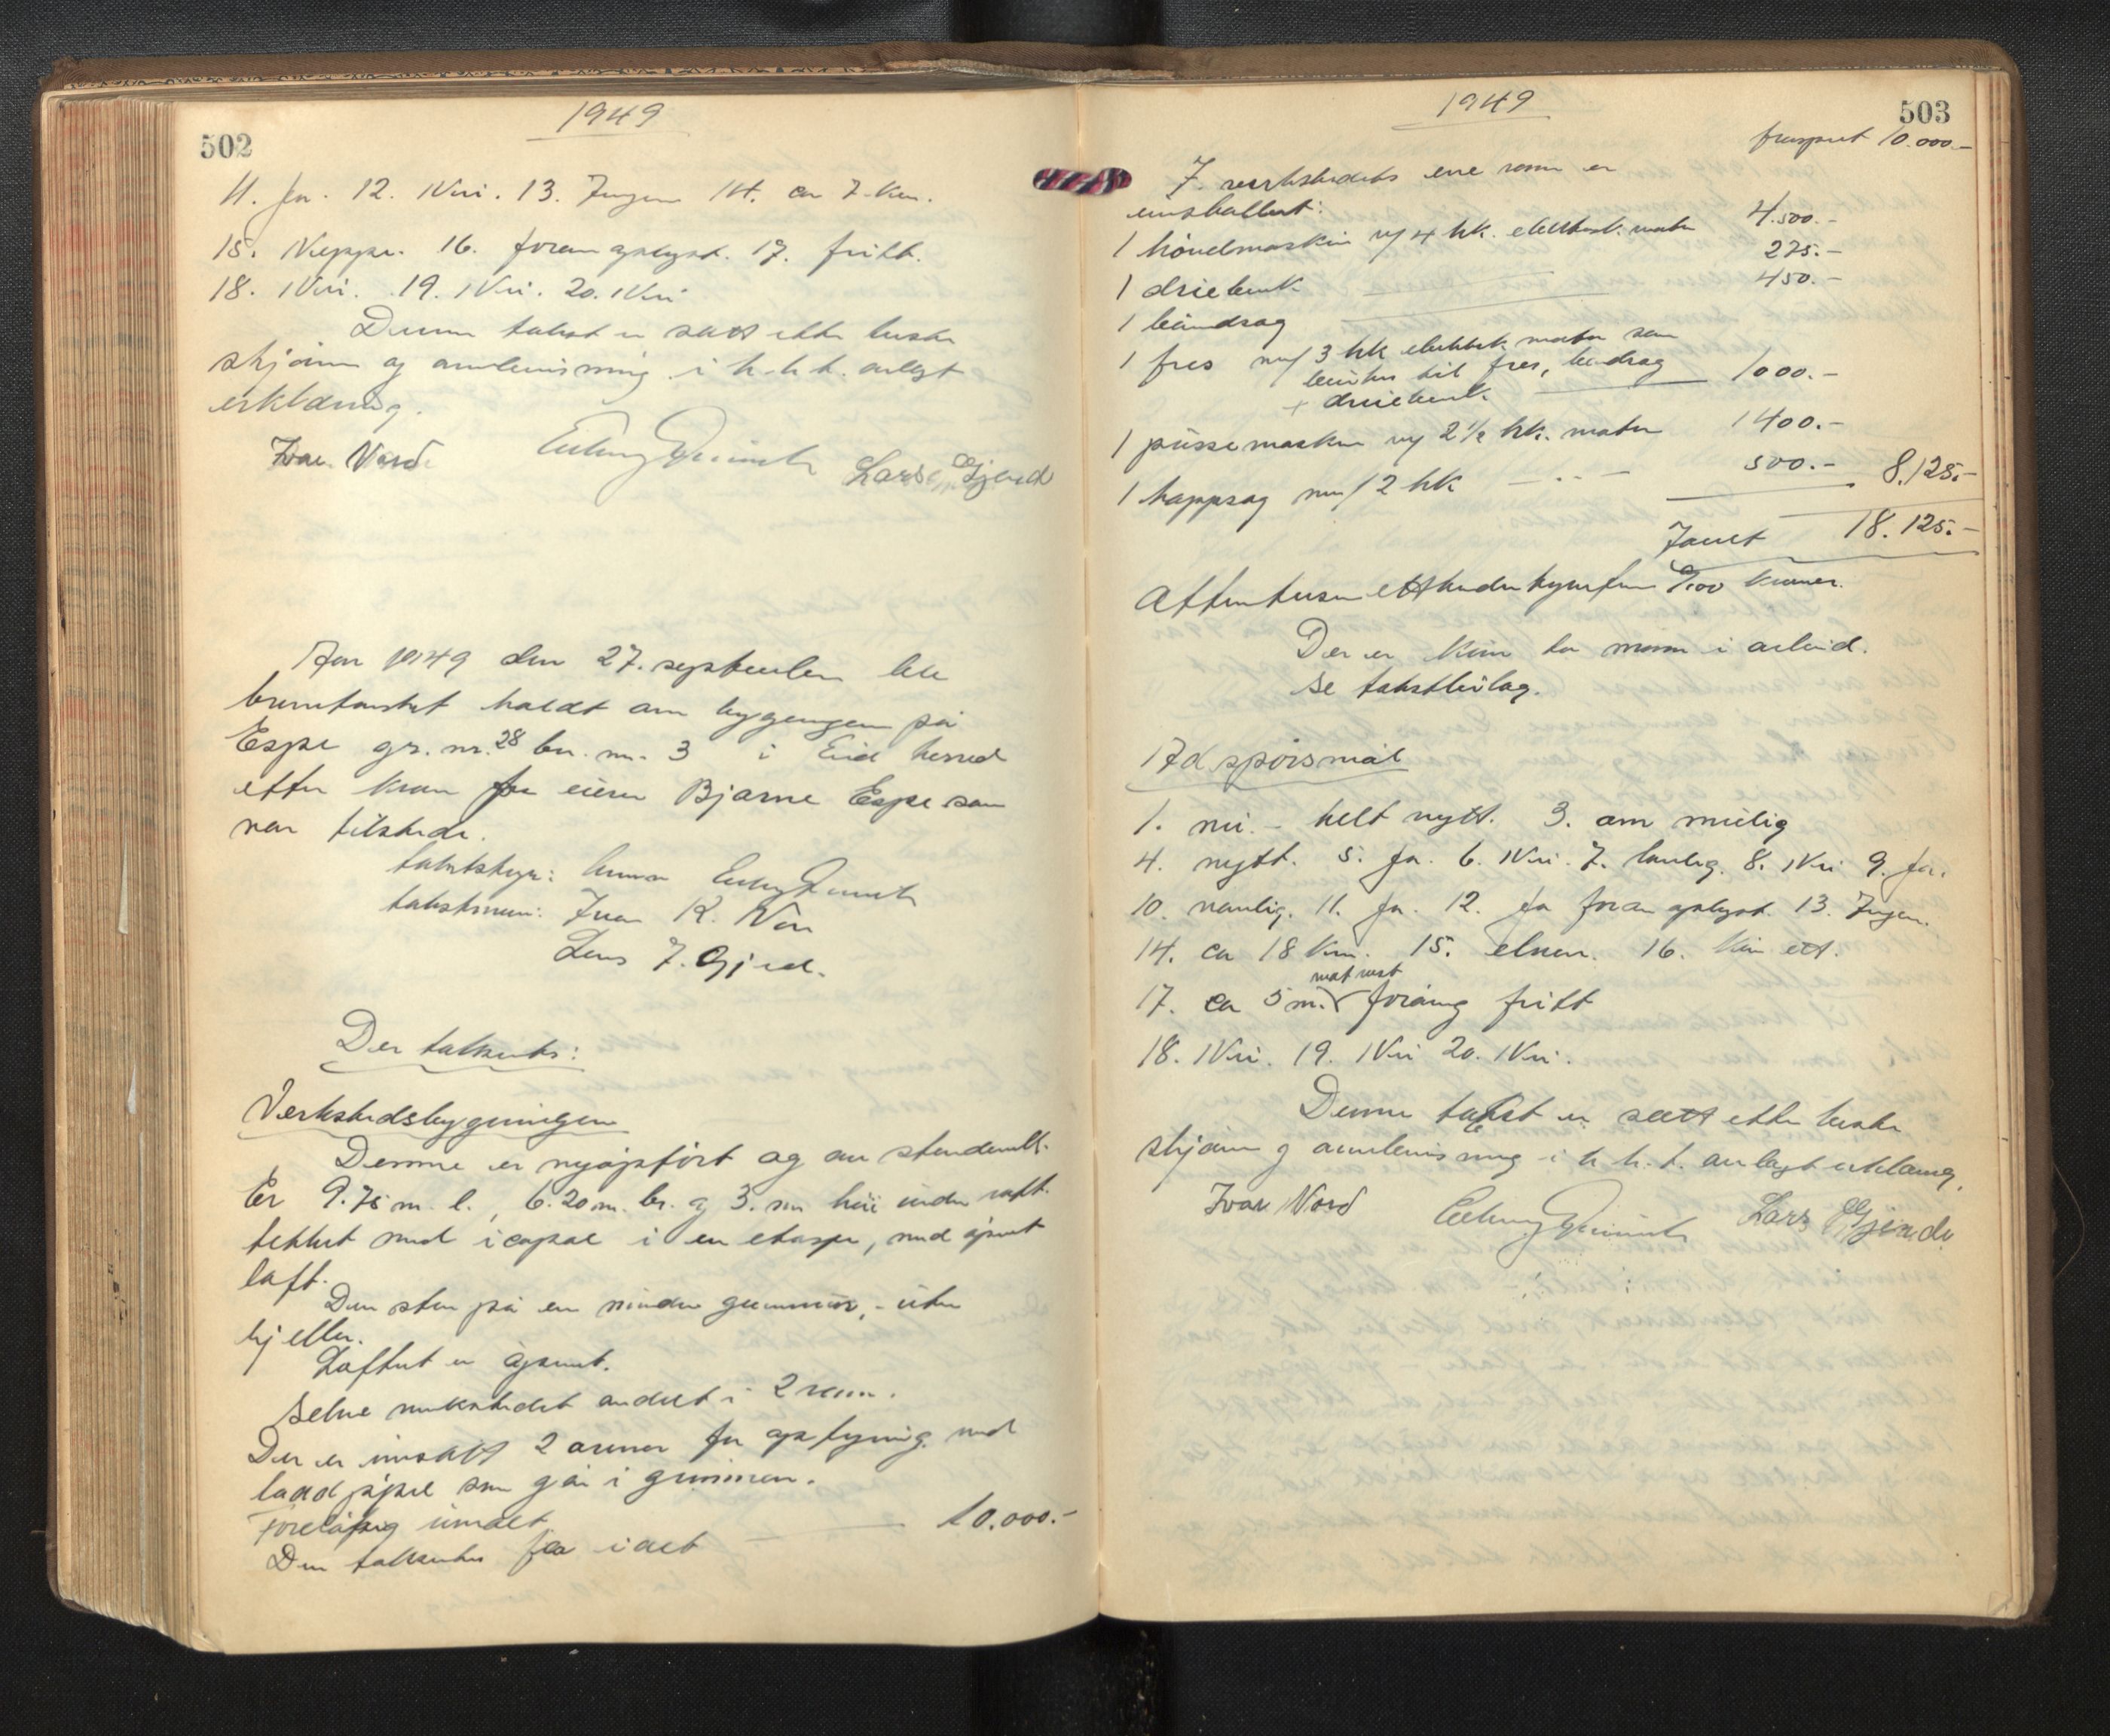 502
1949
11. Ja. 12. Nei. 13. Ingen 14. ca 7 km.
15. Neppe. 16. foran oplyst. 17. fritt.
18. Nei. 19. Nei. 20. Nei
Denne takst er satt etter beste
skjönn og overbevisning i h.h.t. avlagt
erklæring.
Ivar Nord
Lars Gjerde
Aar 1949 den 27. september ble
branntakst holdt over bygningen på
Espe gr. nr. 28 br. nr. 3 i Eid herred
etter krav fra eieren Bjarne Espe som
var tilstede.
takstbestyrer:
takstmenn: Ivar K. Nor
Lars J. Gjerde.
Der takseres:
Verkstedsbygningen
Denne er nyoppfört og av stenderverk.
Er 9.75 m. l., 6.20 m. br. og 3. m höi under raft.
tekket med icopal i en etasje, med åpent
loft.
Den står på en mindre grunnmur, - uten
kjeller.
Loftet er åpent.
Selve verkstedet avdelt i 2 rom.
Der er innsatt 2 ovner for opfyring med
pipe som går i grunnen.
Foreløpig umalt.
Den takseres for i alt 10.000.-
1949
503
Transport 10.000.-
I verkstedets ene rom er
innstallert:
1 hövelmaskin m/4 hk. elektrisk motor 4.500.-
1 driebenk 275.-
1 båndsag 450.-
1 fres m/3 hk elektrisk motor som
benyttes til fres, båndsag
+ driebenk 1000.-
1 pussemaskin m/2½ hk. motor 1400.-
1 kappsag m/2 hk 500.- 8.125.-
Samlet 18.125.-
Attentusen etthundreogtyvefem 0/100 kroner.
Der er kun to mann i arbeid.
Se takstbilag.
Ad spörsmål
1. nei. - helt nytt. 3. som mulig
4. nytt. 5. Ja. 6. Nei. 7. lovlig. 8. Nei 9. Ja.
10. vanlig. 11. Ja. 12. Ja foran oplyst. 13. Ingen.
14. ca 18 km. 15. elven. 16. kun ett.
17. ca 5 m. mot vest foröving fritt
18. Nei. 19. Nei 20. Nei.
Denne takst er satt etter beste
skjönn og overbevisning i h.h.t. avlagt erklæring.
Ivar Nord
Lars Gjerde